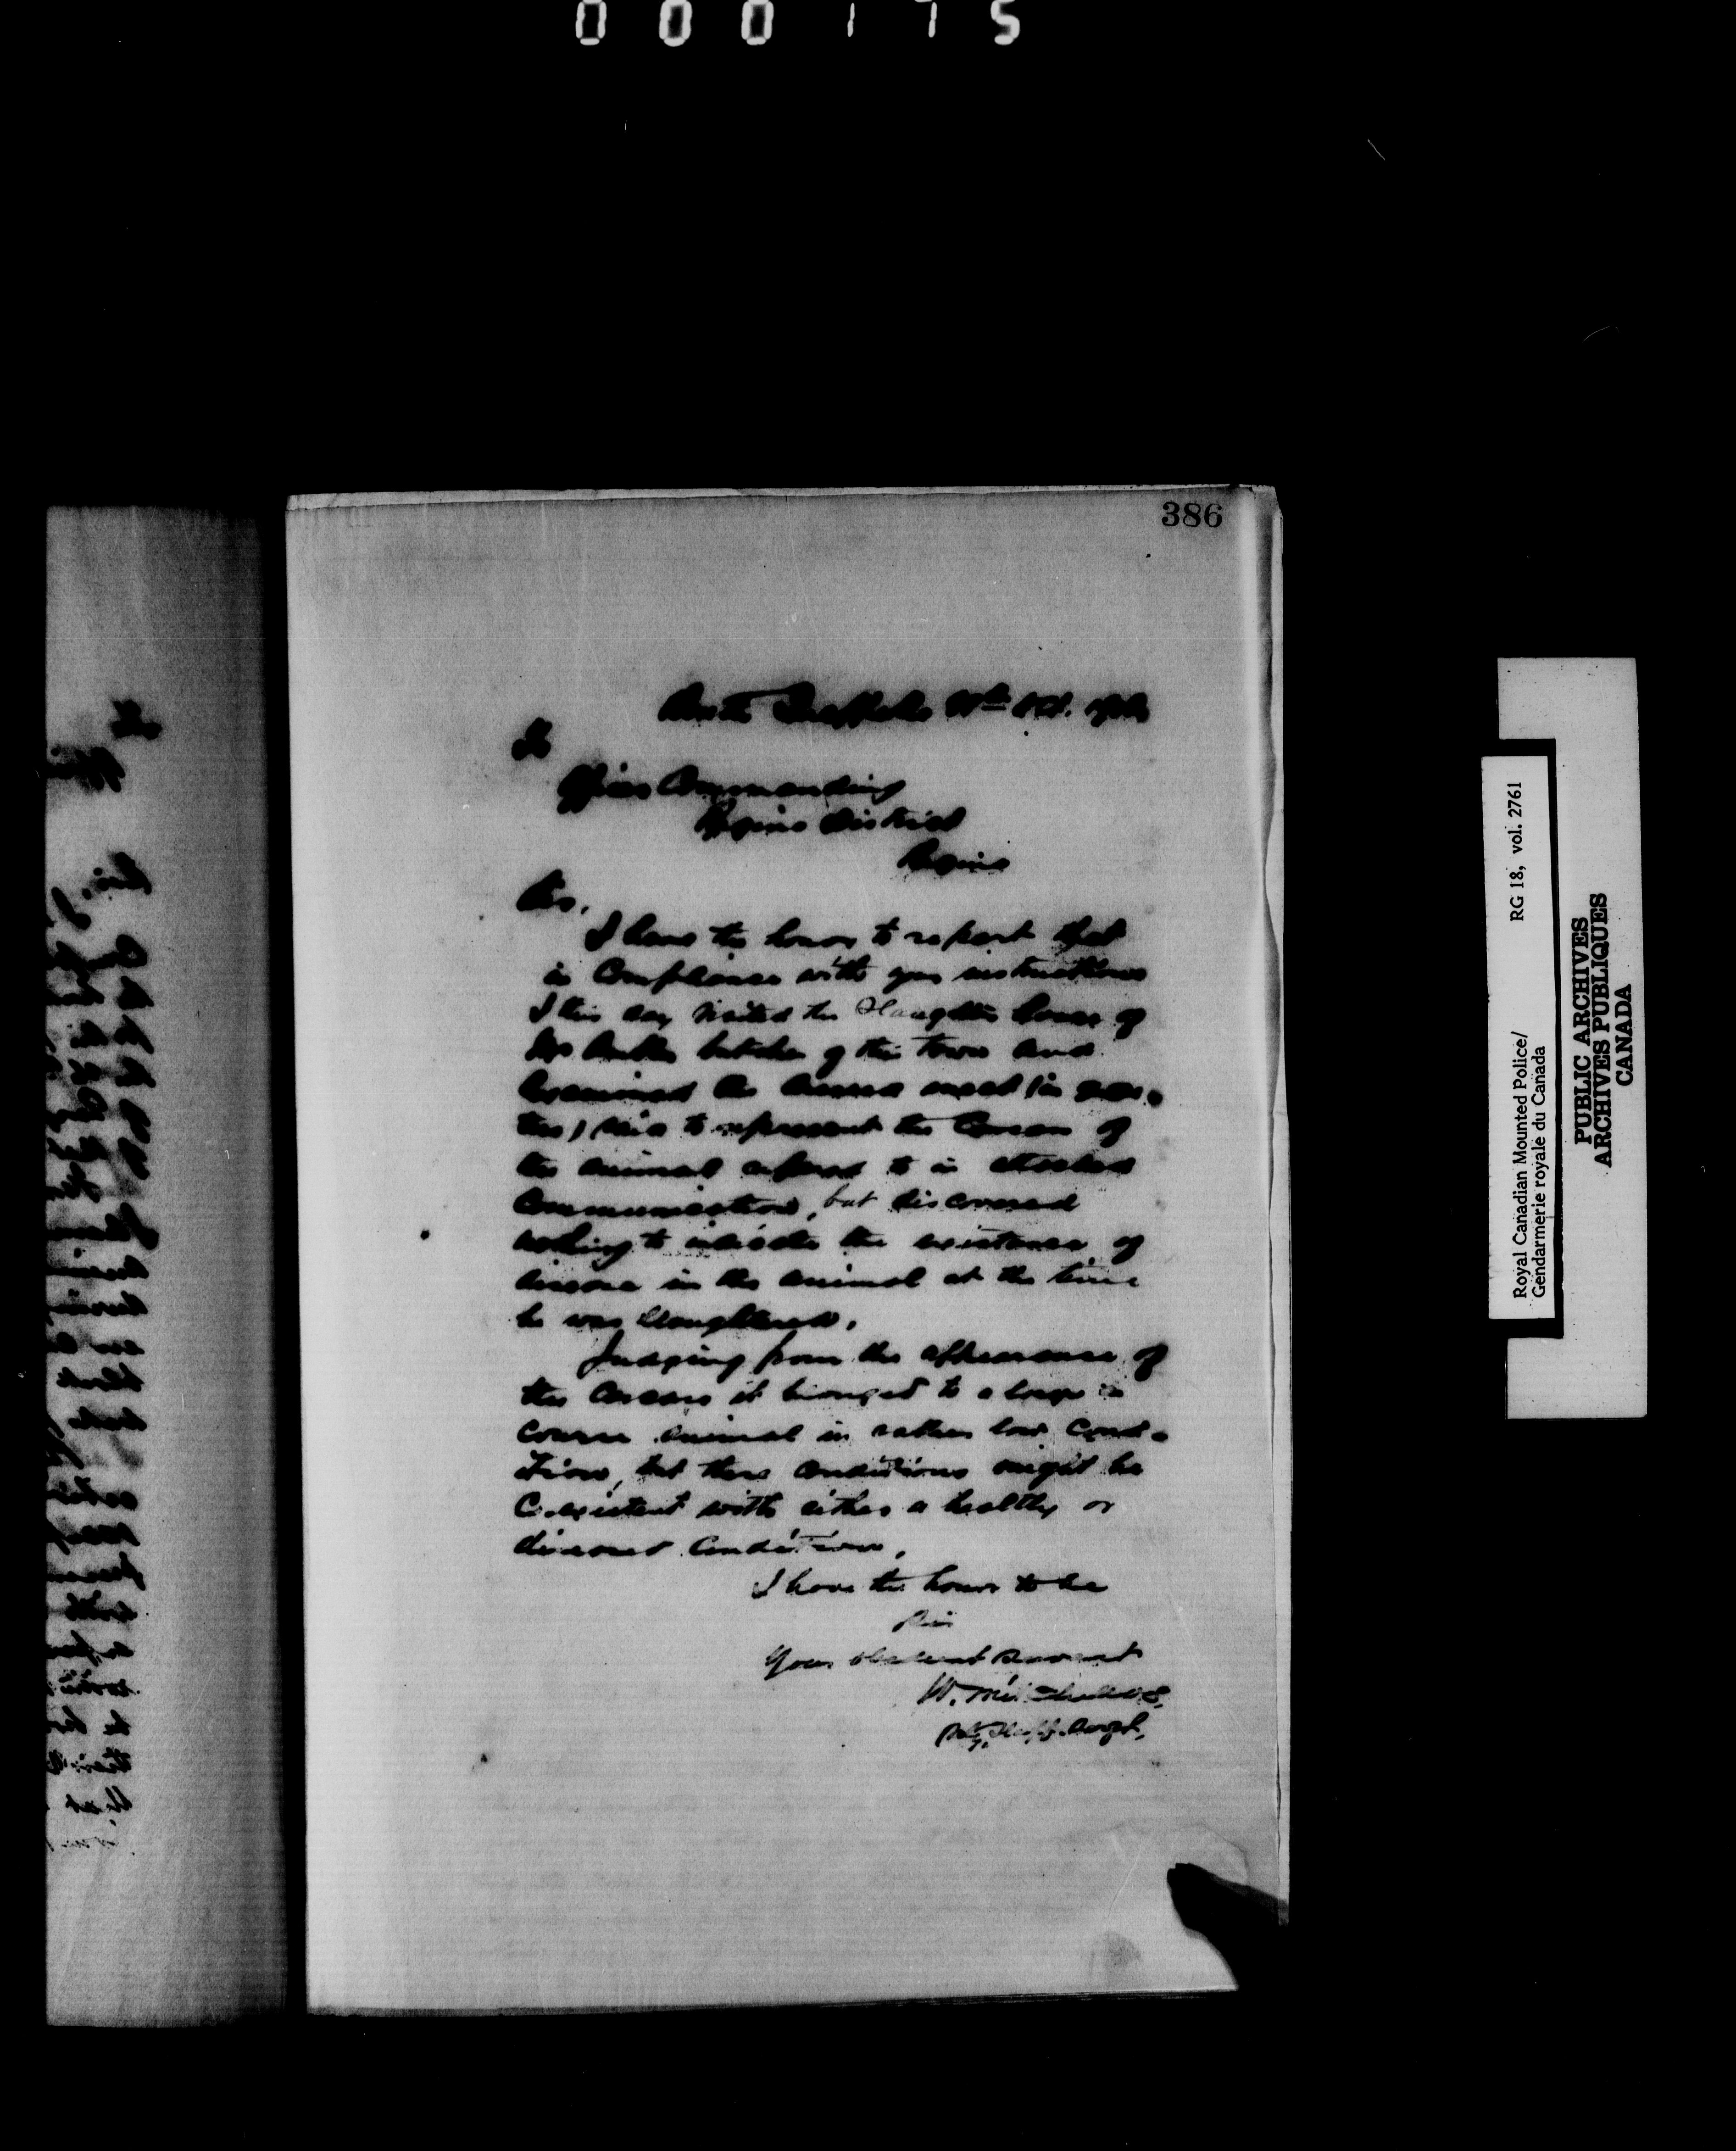 000175
386
To
Officer Commanding
Regina District
Regina
Sir,
I have the honor to report that
in compliance with your instructions
I this day visited the Slaughter house of
butcher of this town and
examined the dressed meat (in
this) said to represent the carcass of
the animal referred to in attached
communication, but discovered
nothing to indicate the existence of
disease in the animal at the time
he was slaughtered.
Judging from the appearance of
the carcass it belonged to a large
coarse animal in rather low cond-
ition, but these conditions might be
Coexistent with either a healthy or
diseased condition.
I have the honor to be
Sir
Your obedient servant
W. Mitchell V.S.
Staff. Sergt.
Royal Canadian Mounted Police/ RG 18, vol. 2761
Gendarmerie royale du Canada
PUBLIC ARCHIVES
ARCHIVES PUBLIQUES
CANADA